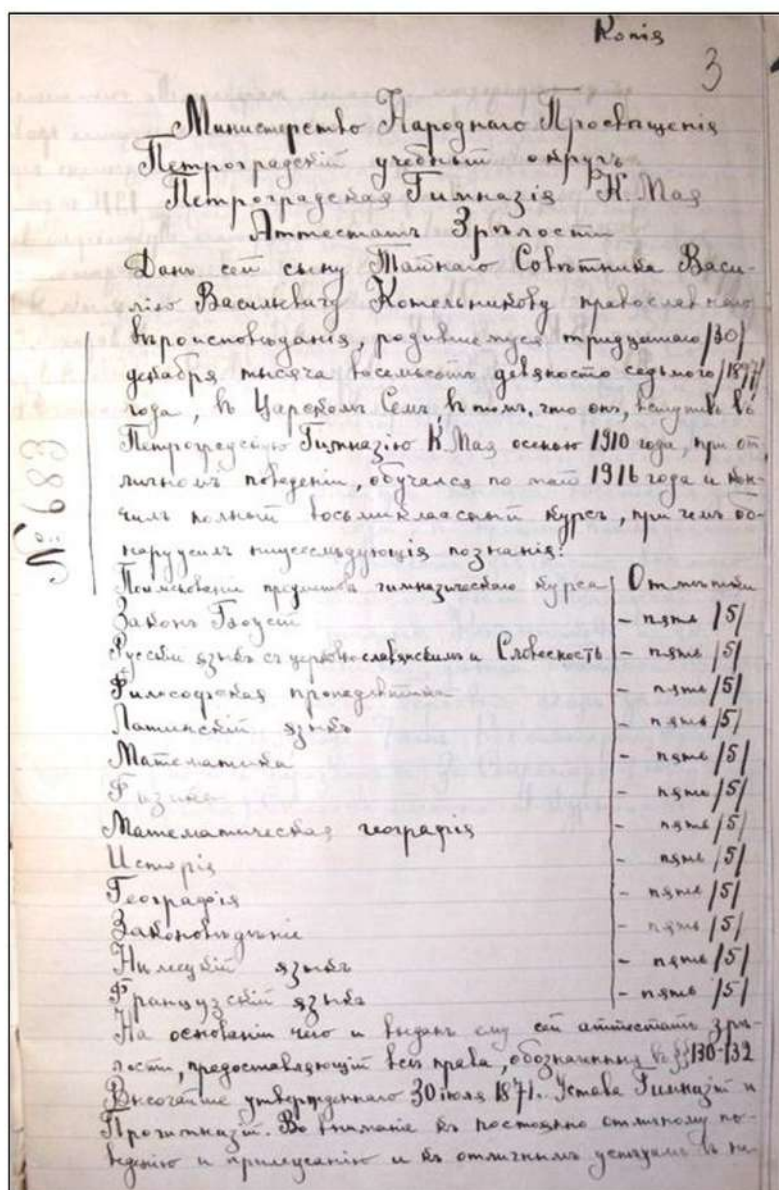 Копія
3
Министерство Народнаго Просвѣщенія
Петроградскій учебный округъ
Петроградская Гимназія К. Мая
Аттестатъ Зрѣлости
Данъ сей сыну Тайнаго Совѣтника Васи-
лію Васильевичу Котельникову православнаго
вѣроисповѣданія, родившемуся тридцатаго /30/
декабря тысяча восемьсотъ девяносто седьмого /1897/
года, въ Царскомъ Селѣ, въ томъ, что онъ, вступивъ въ
Петроградскую Гимназію К. Мая осенью 1910 года, при от-
личномъ поведеніи, обучался по май 1916 года и кон-
чилъ полный восьмиклассный курсъ, при чемъ об-
наружилъ нижеслѣдующія познанія:
№ 683
Наименованіе предметовъ гимназическаго курса Отмѣтки
Законъ Божій - пять /5/
Русскій языкъ съ церковнославянскимъ и Словесность - пять /5/
Философская пропедевтика - пять /5/
Латинскій языкъ - пять /5/
Математика - пять /5/
Физика - пять /5/
Математическая географія - пять /5/
Исторія - пять /5/
Географія - пять /5/
Законовѣдѣніе - пять /5/
Нѣмецкій языкъ - пять /5/
Французскій языкъ - пять /5/
На основаніи чего и выданъ ему сей аттестатъ зрѣ-
лости, предоставляющій всѣ права, обозначенныя въ §§ 130-132
Высочайше утвержденнаго 30 іюля 1871 г. Устава Гимназій и
Прогимназій. Во вниманіе къ постоянно отличному по-
веденію и прилежанію и къ отличнымъ успѣхамъ въ на-